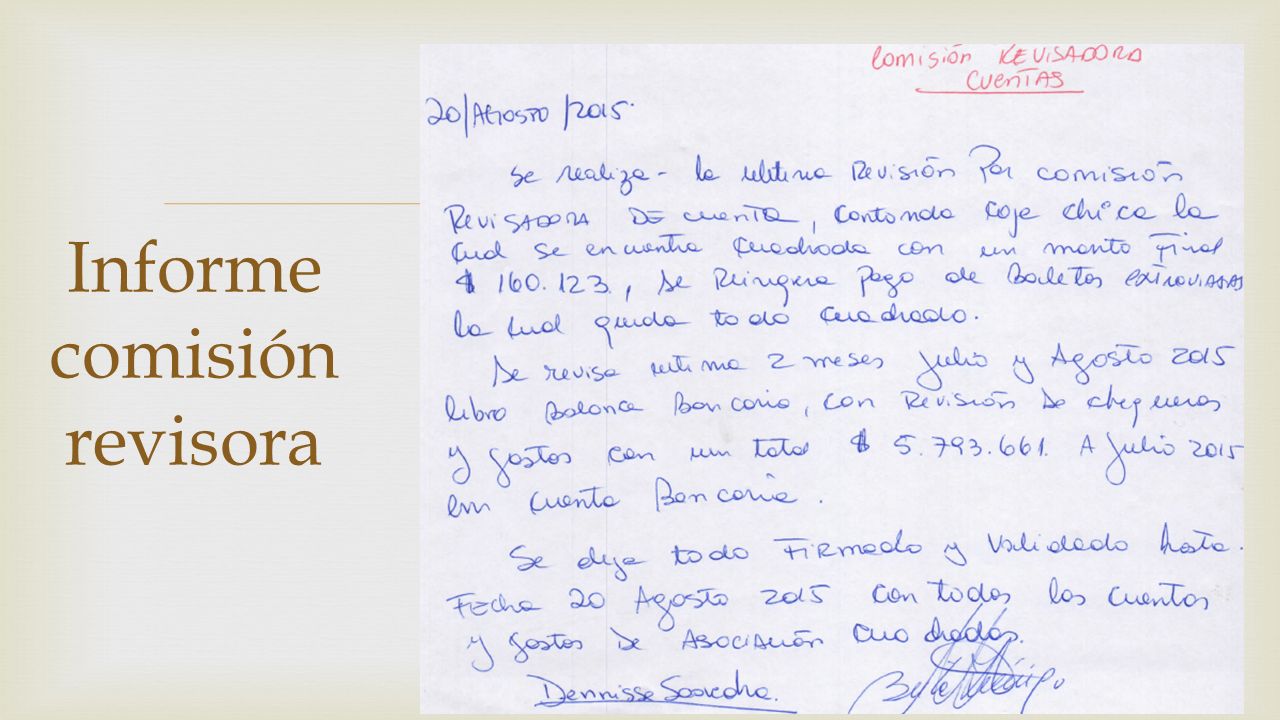 Informe
comisión
revisora
Comisión REVISADORA
CUENTAS
20/AGOSTO/2015.
Se realiza - la ultima Revisión Por comisión
REVISADORA DE cuenta, Contando Caja chica la
Cual se encuentra Cuadrada con un monto Final
$ 160.123., Se Reingera pago de Boletas extraviadas
la cual queda todo Cuadrado.
Se revisa ultima 2 meses Julio y Agosto 2015
libro Balance Bancario, con Revisión de chequeras
y gastos con un total $ 5.793.661. A Julio 2015
en Cuenta Bancaria.
Se deja todo Firmado y Validado hasta.
Fecha 20 Agosto 2015 con todas las cuentas
y gastos De Asociación Cuadradas.
Dennisse Saavedra.